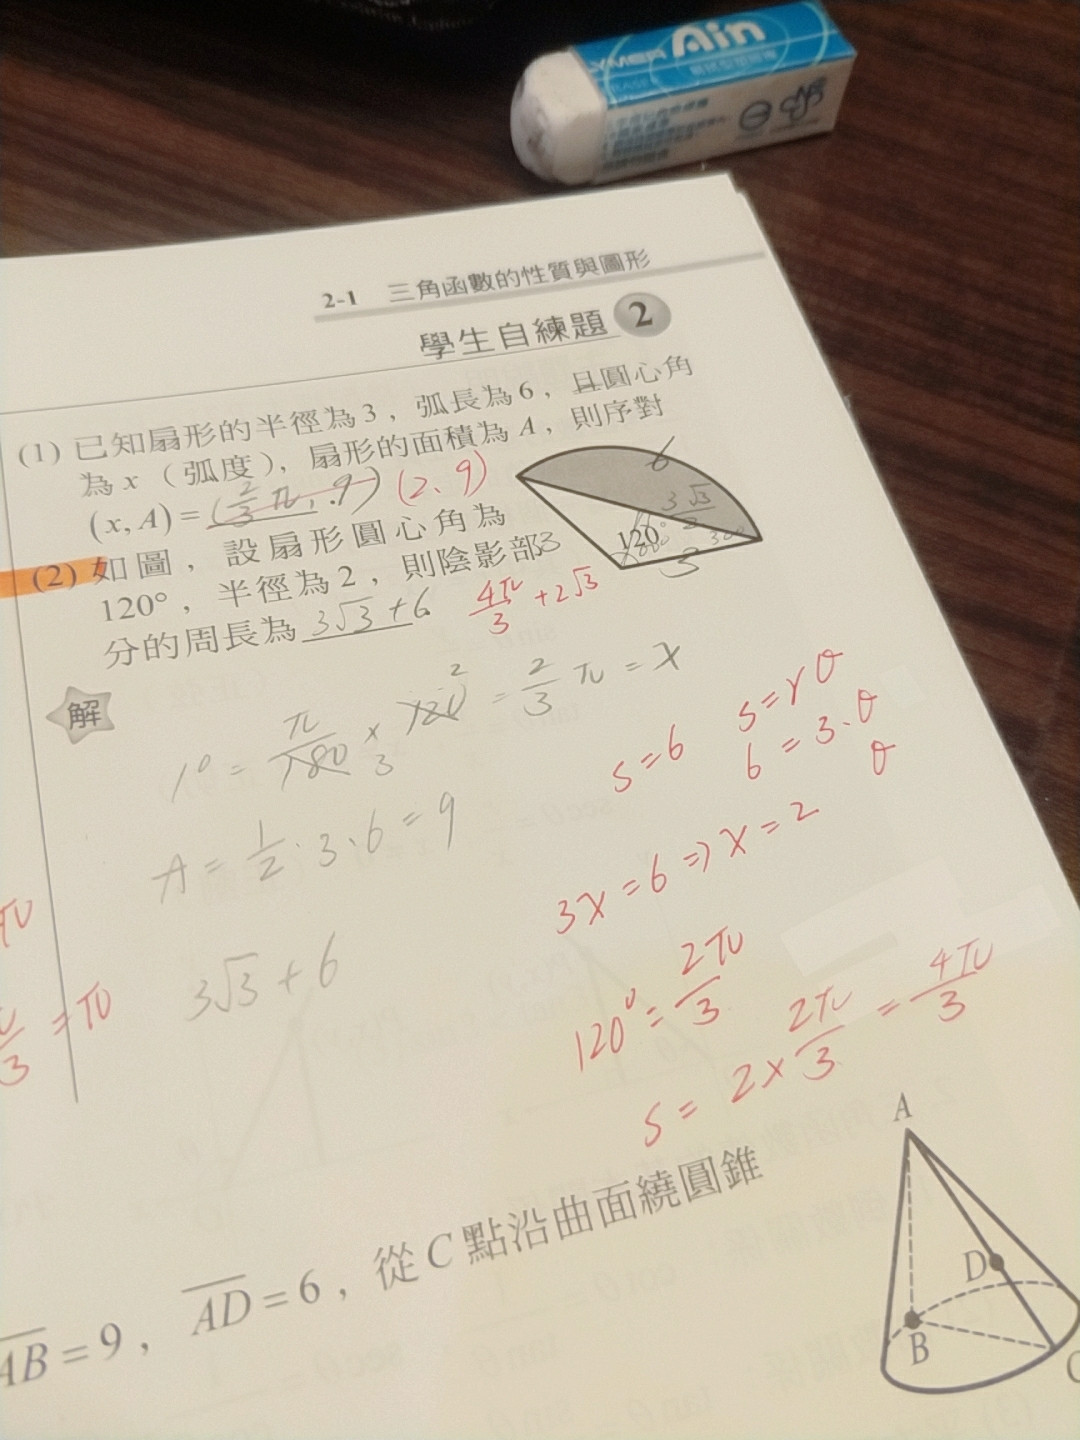 Ain
2-1 三角函數的性質與圖形
學生自練題 2
(1) 已知扇形的半徑為3，弧長為6，且圓心角
為 x（弧度），扇形的面積為 A，則序對
(x, A) = (2/3 π, 9) (2、9)
6
3√3
120°
3
3
(2) 如圖，設扇形圓心角為
120°，半徑為2，則陰影部
分的周長為 3√3+6 4π/3 + 2√3
解
1° = π/180 × 120 = 2/3 π = x
3 2
A = 1/2 · 3 · 6 = 9
3√3 + 6
s = 6 s = rθ
6 = 3·θ
θ
3x = 6 ⇒ x = 2
120° = 2π/3
s = 2 × 2π/3 = 4π/3
π
3 = π
AB = 9，AD = 6，從 C 點沿曲面繞圓錐
A
D
B
C